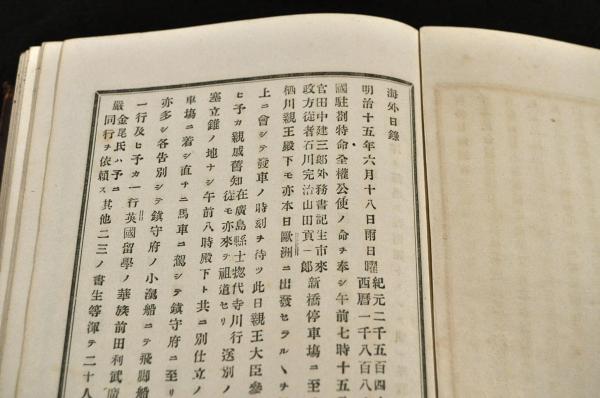 海外日錄
明治十五年六月十八日雨日曜
紀元二千五百四
西曆一千八百八
國駐劄特命全權公使ノ命チ奉シ午前七時十五
官田中建三郎外務書記生市來
政方從者石川完治山田貢一郎
新橋停車塲ニ至
栖川親王殿下モ亦本日歐洲ニ出發セラル、チ
上ニ會シテ發車ノ時刻チ待ツ此日親王大臣參
ヒ予カ親戚舊知
在廣島縣士
從モ亦來テ祖道セリ
惣代寺川行
送別ノ
塞立錐ノ地ナシ午前八時殿下ト共ニ別仕立ノ
車塲ニ着シ直チニ馬車ニ駕シテ鎮守府ニ至リ
亦多シ各告別シテ鎮守府ノ小瀛船ニテ飛脚船
一行及ヒ予カ一行英國留學ノ華族前田利武
嚴金尾氏ハ予ニ
同行チ依賴ス
其他二三ノ書生等渾テ二十八